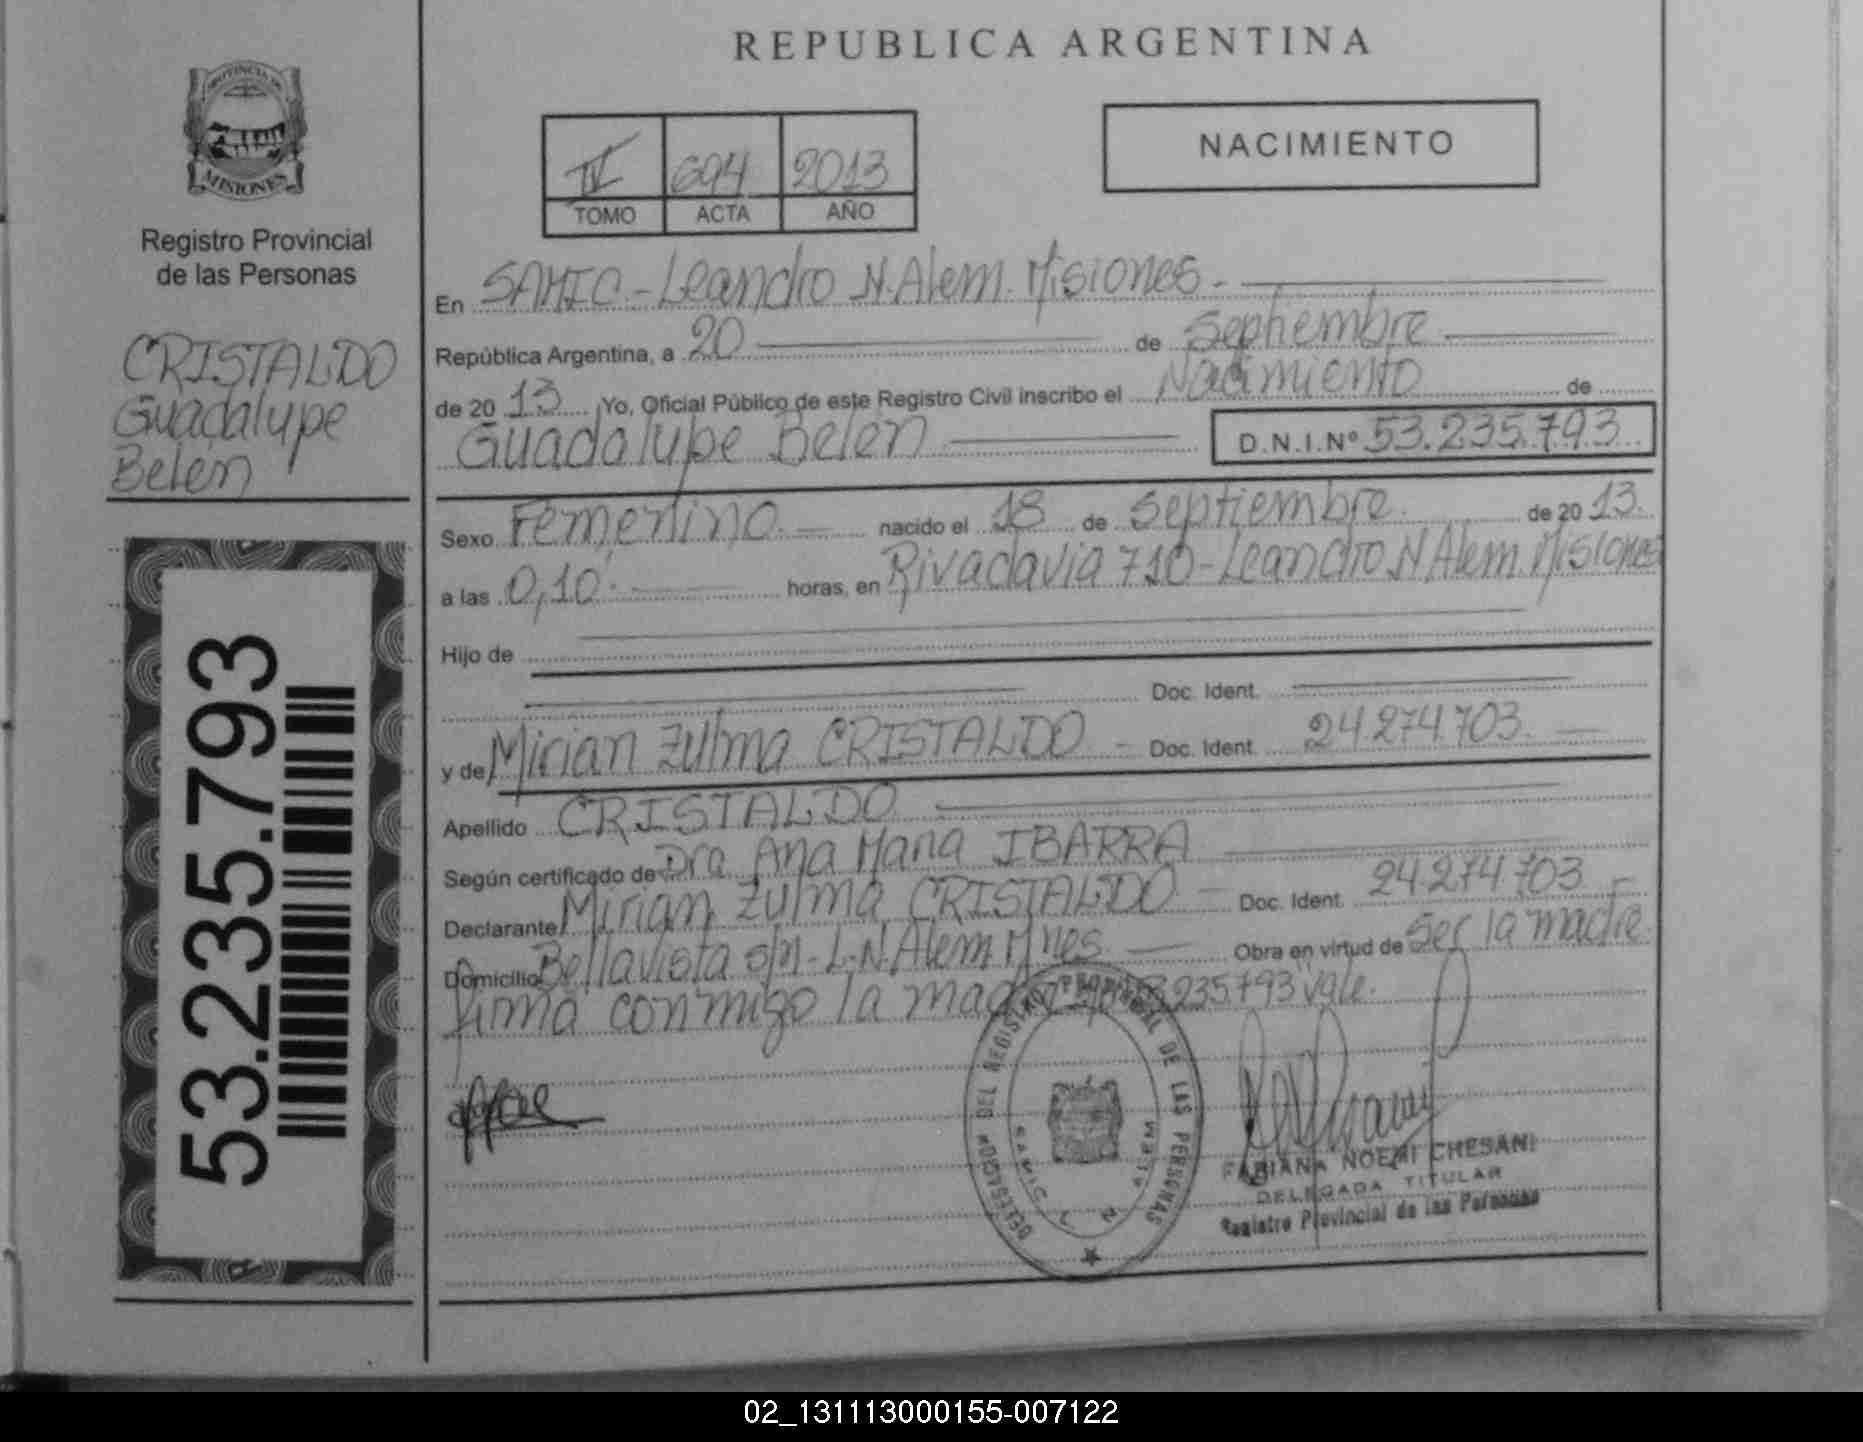 REPUBLICA ARGENTINA
PROVINCIA DE
MISIONES
Registro Provincial
de las Personas
CRISTALDO
Guadalupe
Belén
53.235.793
IV 694 2013
TOMO ACTA AÑO
NACIMIENTO
En SAMIC - Leandro N. Alem. Misiones.
República Argentina, a 20 de Septiembre
de 20 13 Yo, Oficial Público de este Registro Civil inscribo el Nacimiento de
Guadalupe Belén D.N.I.Nº 53.235.793
Sexo Femenino. nacido el 18 de septiembre. de 20 13.
a las 0,10. horas, en Rivadavia 710 - Leandro N Alem. Misiones
Hijo de
Doc. Ident.
y de Mirian Zulma CRISTALDO Doc. Ident. 24.274.703.
Apellido CRISTALDO
Según certificado de Dra Ana Maria IBARRA
Declarante Mirian Zulma CRISTALDO Doc. Ident. 24.274.703
Domicilio Bellavista s/n - L.N. Alem. Mnes. Obra en virtud de Ser la madre.
firma conmigo la 235.793 vale.
DELEGACION DEL REGISTRO PROVINCIAL DE LAS PERSONAS
SAMIC L N ALEM
FABIANA NOEMI CHESANI
DELEGADA TITULAR
Registro Provincial de las Personas
02_131113000155-007122